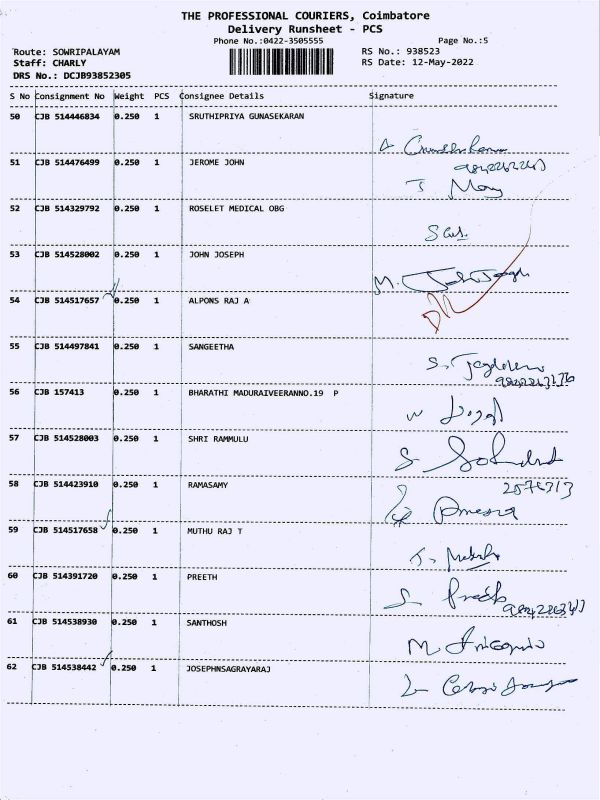 THE PROFESSIONAL COURIERS, Coimbatore
Delivery Runsheet - PCS
Phone No.:0422-3505555 Page No.:5
Route: SOWRIPALAYAM RS No.: 938523
Staff: CHARLY RS Date: 12-May-2022
DRS No.: DCJB93852305
S No Consignment No Weight PCS Consignee Details Signature
50 CJB 514446834 0.250 1 SRUTHIPRIYA GUNASEKARAN
51 CJB 514476499 0.250 1 JEROME JOHN
52 CJB 514329792 0.250 1 ROSELET MEDICAL OBG
53 CJB 514528002 0.250 1 JOHN JOSEPH
M. John Joseph
54 CJB 514517657 0.250 1 ALPONS RAJ A
55 CJB 514497841 0.250 1 SANGEETHA
56 CJB 157413 0.250 1 BHARATHI MADURAIVEERANNO.19 P
57 CJB 514528003 0.250 1 SHRI RAMMULU
58 CJB 514423910 0.250 1 RAMASAMY
59 CJB 514517658 0.250 1 MUTHU RAJ T
60 CJB 514391720 0.250 1 PREETH
61 CJB 514538930 0.250 1 SANTHOSH
62 CJB 514538442 0.250 1 JOSEPHNSAGRAYARAJ